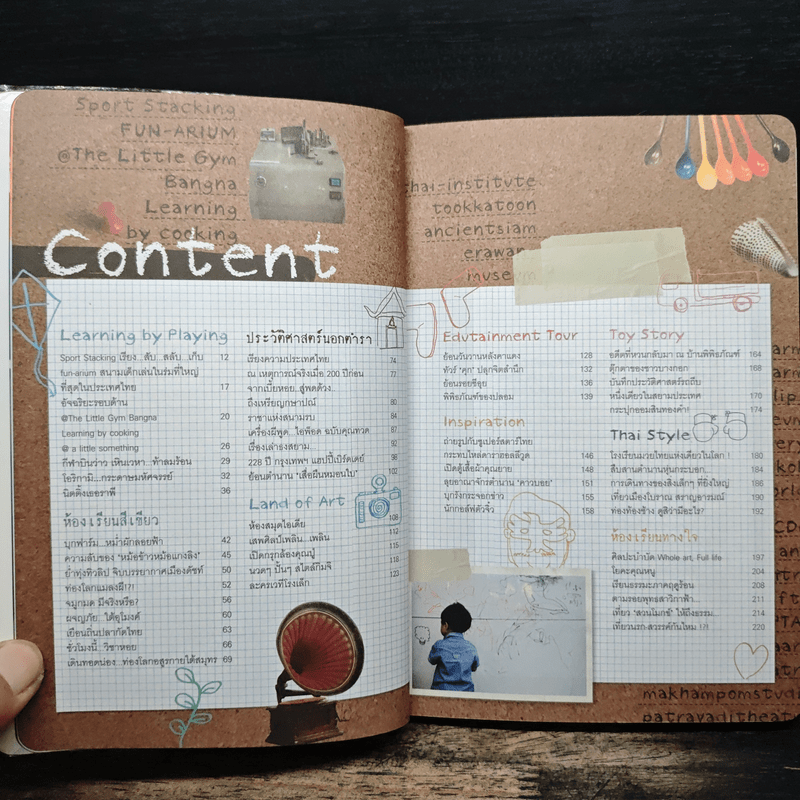 Sport Stacking
FUN-ARIUM
@The Little Gym
Bangna
Learning
by cooking
Content
Learning by Playing
Sport Stacking เรียง สับ สลับ เก็บ 12
fun-arium สนามเด็กเล่นในร่มที่ใหญ่
ที่สุดในประเทศไทย 17
อัจฉริยะรอบด้าน
@The Little Gym Bangna 20
Learning by cooking
@ a little something 26
กีฬาบินว่าว เหินเวหา...ท้าลมร้อน 29
โอริกามิ...กระดาษมหัศจรรย์ 32
นิตติ้งเธอราพี 36
ห้องเรียนสีเขียว
บุกฟาร์ม...หม่ำผักลอยฟ้า 42
ความลับของ 'หม้อข้าวหม้อแกงลิง' 45
ย่ำทุ่งทิวลิป จิบบรรยากาศเมืองดัทช์ 50
ท่องโลกแมลงผี!?! 52
จมูกมด มีจริงหรือ? 56
ผจญภัย ใต้อุโมงค์ 60
เยือนถิ่นปลากัดไทย 63
ชั่วโมงนี้ วิชาหอย 66
เดินทอดน่อง..ท่องโลกอสุรกายใต้สมุทร 69
ประวัติศาสตร์นอกตำรา
เรียงความประเทศไทย 74
ณ เหตุการณ์จริงเมื่อ 200 ปีก่อน 77
จากเบี้ยหอย...สู่พดด้วง..
ถึงเหรียญกษาปณ์ 80
ราชาแห่งสนามรบ 84
เครื่องมีพูด...ไอพ็อด ฉบับคุณทวด 87
เรื่องเล่าองสยาม... 92
228 ปี กรุงเทพฯ แฮปปี้เบิร์ดเดย์ 98
ย้อนตำนาน "เสื่อผืนหมอนใบ" 102
Land of Art
ห้องสมุดไอเดีย 108
เสพศิลป์เพลิน...เพลิน 112
เปิดกรุกล้องคุณปู่ 115
นวดๆ ปั้นๆ สไตล์กิมจิ 118
ละครเวทีโรงเล็ก 123
thai-institute
tookkatoon
ancientsiam
erawan
museum
Edutainment Tour
ย้อนวันวานหลังคาแดง 128
ทัวร์ 'คุก' ปลุกจิตสำนึก 132
ย้อนรอยซีอุย 136
พิพิธภัณฑ์ของปลอม 139
Inspiration
ถ่ายรูปกับซูเปอร์สตาร์ไทย
กระทบไหล่ดาราฮอลลีวูด 146
เปิดตู้เสื้อผ้าคุณยาย 148
ลุยอาณาจักรตำนาน 'คาวบอย' 151
บุกรังกระจอกข่าว 155
นักกอล์ฟตัวจิ๋ว 158
Toy Story
อดีตที่หวนกลับมา ณ บ้านพิพิธภัณฑ์ 164
ตุ๊กตาของชาวบางกอก 168
บันทึกประวัติศาสตร์รถถีบ
หนึ่งเดียวในสยามประเทศ 170
กระปุกออมสินทองคำ! 174
Thai Style
โรงเรียนมวยไทยแห่งเดียวในโลก ! 180
สืบสานตำนานหุ่นกระบอก.. 184
การเดินทางของสิ่งเล็กๆ ที่ยิ่งใหญ่ 186
เที่ยวเมืองโบราณ สราญอารมณ์ 190
ท่องท้องช้าง ดูสิว่ามีอะไร? 192
ห้องเรียนทางใจ
ศิลปะบำบัด Whole art, Full life 197
โยคะคุณหนู 204
เรียนธรรมะภาคฤดูร้อน 208
ตามรอยพุทธสาวิกาฟ้า... 211
เที่ยว 'สวนโมกข์' ให้ถึงธรรม... 214
เที่ยวนรก-สวรรค์กันไหม !?! 220
makhampomstudi
patravaditheat